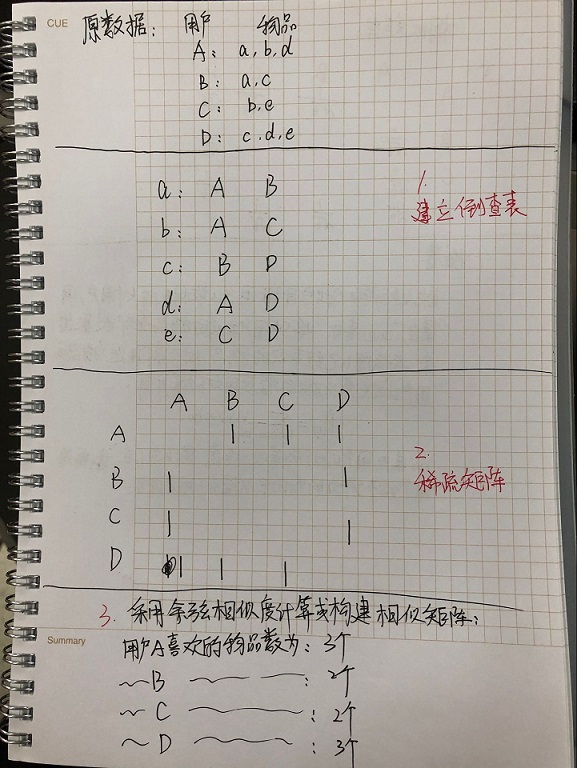 CUE
原数据: 用户 物品
A: a,b,d
B: a,c
C: b,e
D: c.d,e
a: A B
b: A C
c: B D
d: A D
e: C D
1.
建立倒查表
A B C D
A 1 1 1
B 1 1
C 1 1
D 1 1 1
2.
稀疏矩阵
3. 采用余弦相似度计算或构建相似矩阵:
Summary
用户A喜欢的物品数为: 3个
~B ~ : 2个
~C ~ : 2个
~D ~ : 3个